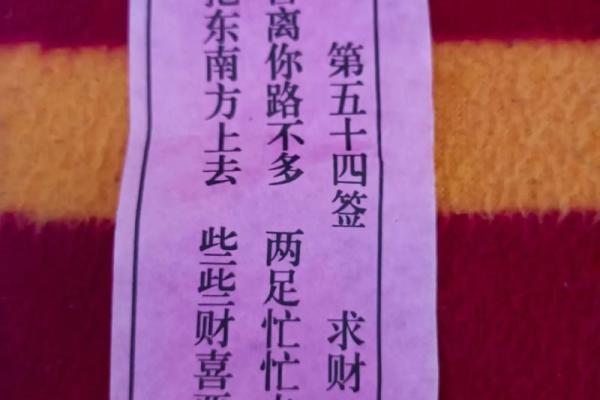 第五十四签 求财
离你路不多 两足忙忙
东南方上去 些些财喜